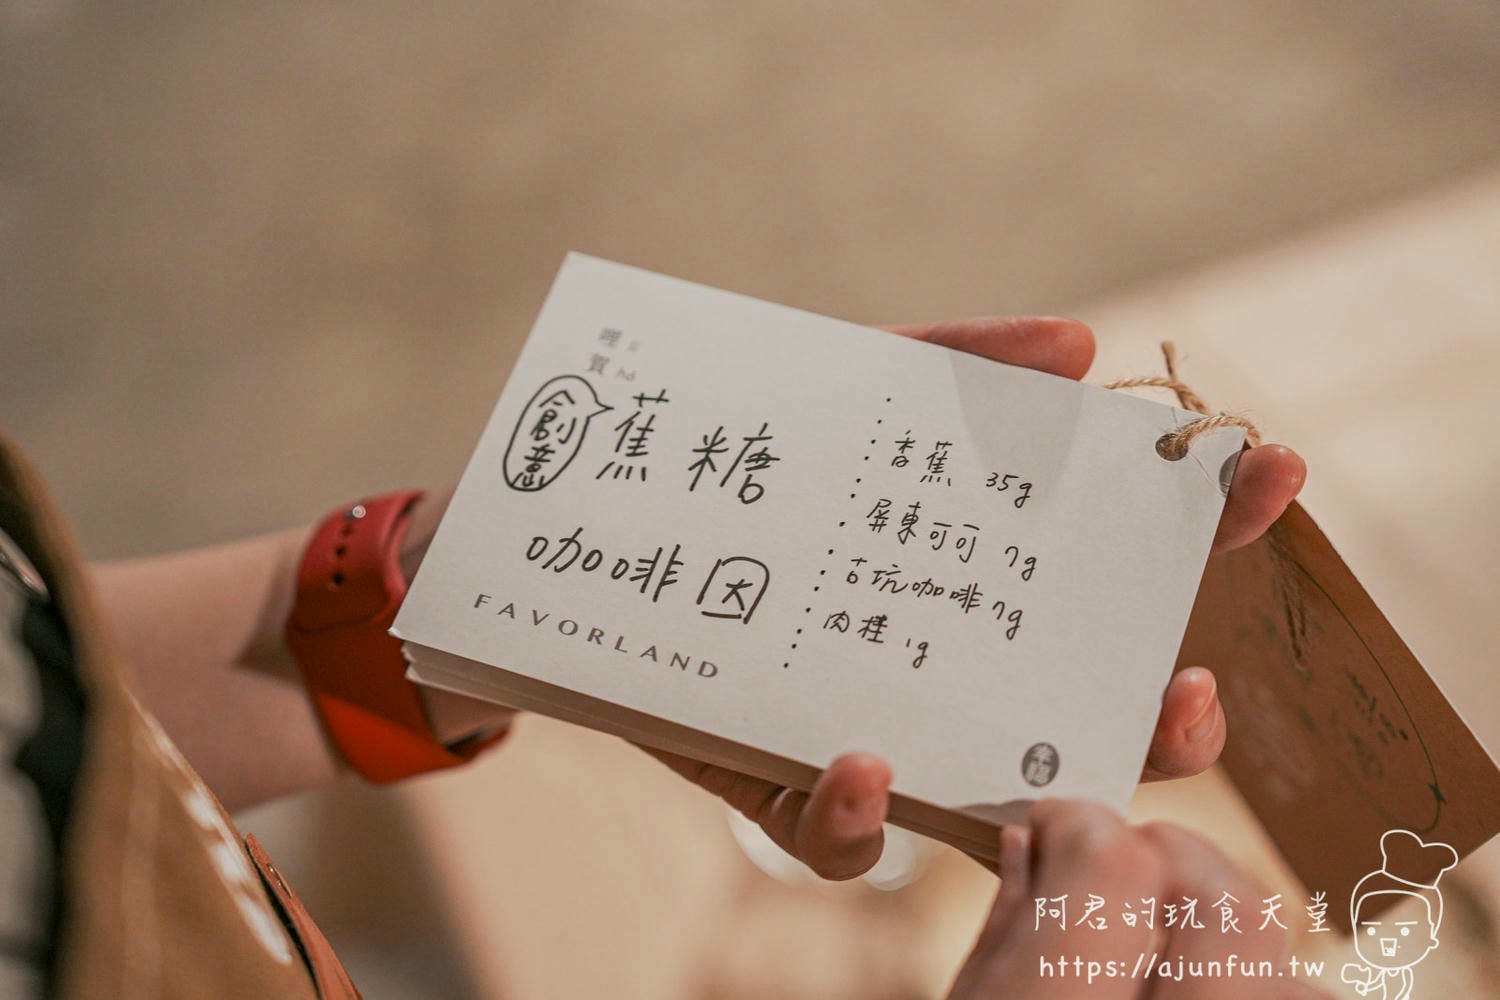 哩 li
賀 hó
創意
蕉糖
咖啡因
FAVORLAND
香蕉 35g
屏東可可 7g
古坑咖啡 7g
肉桂 1g
幸福
阿君的玩食天堂
https://ajunfun.tw